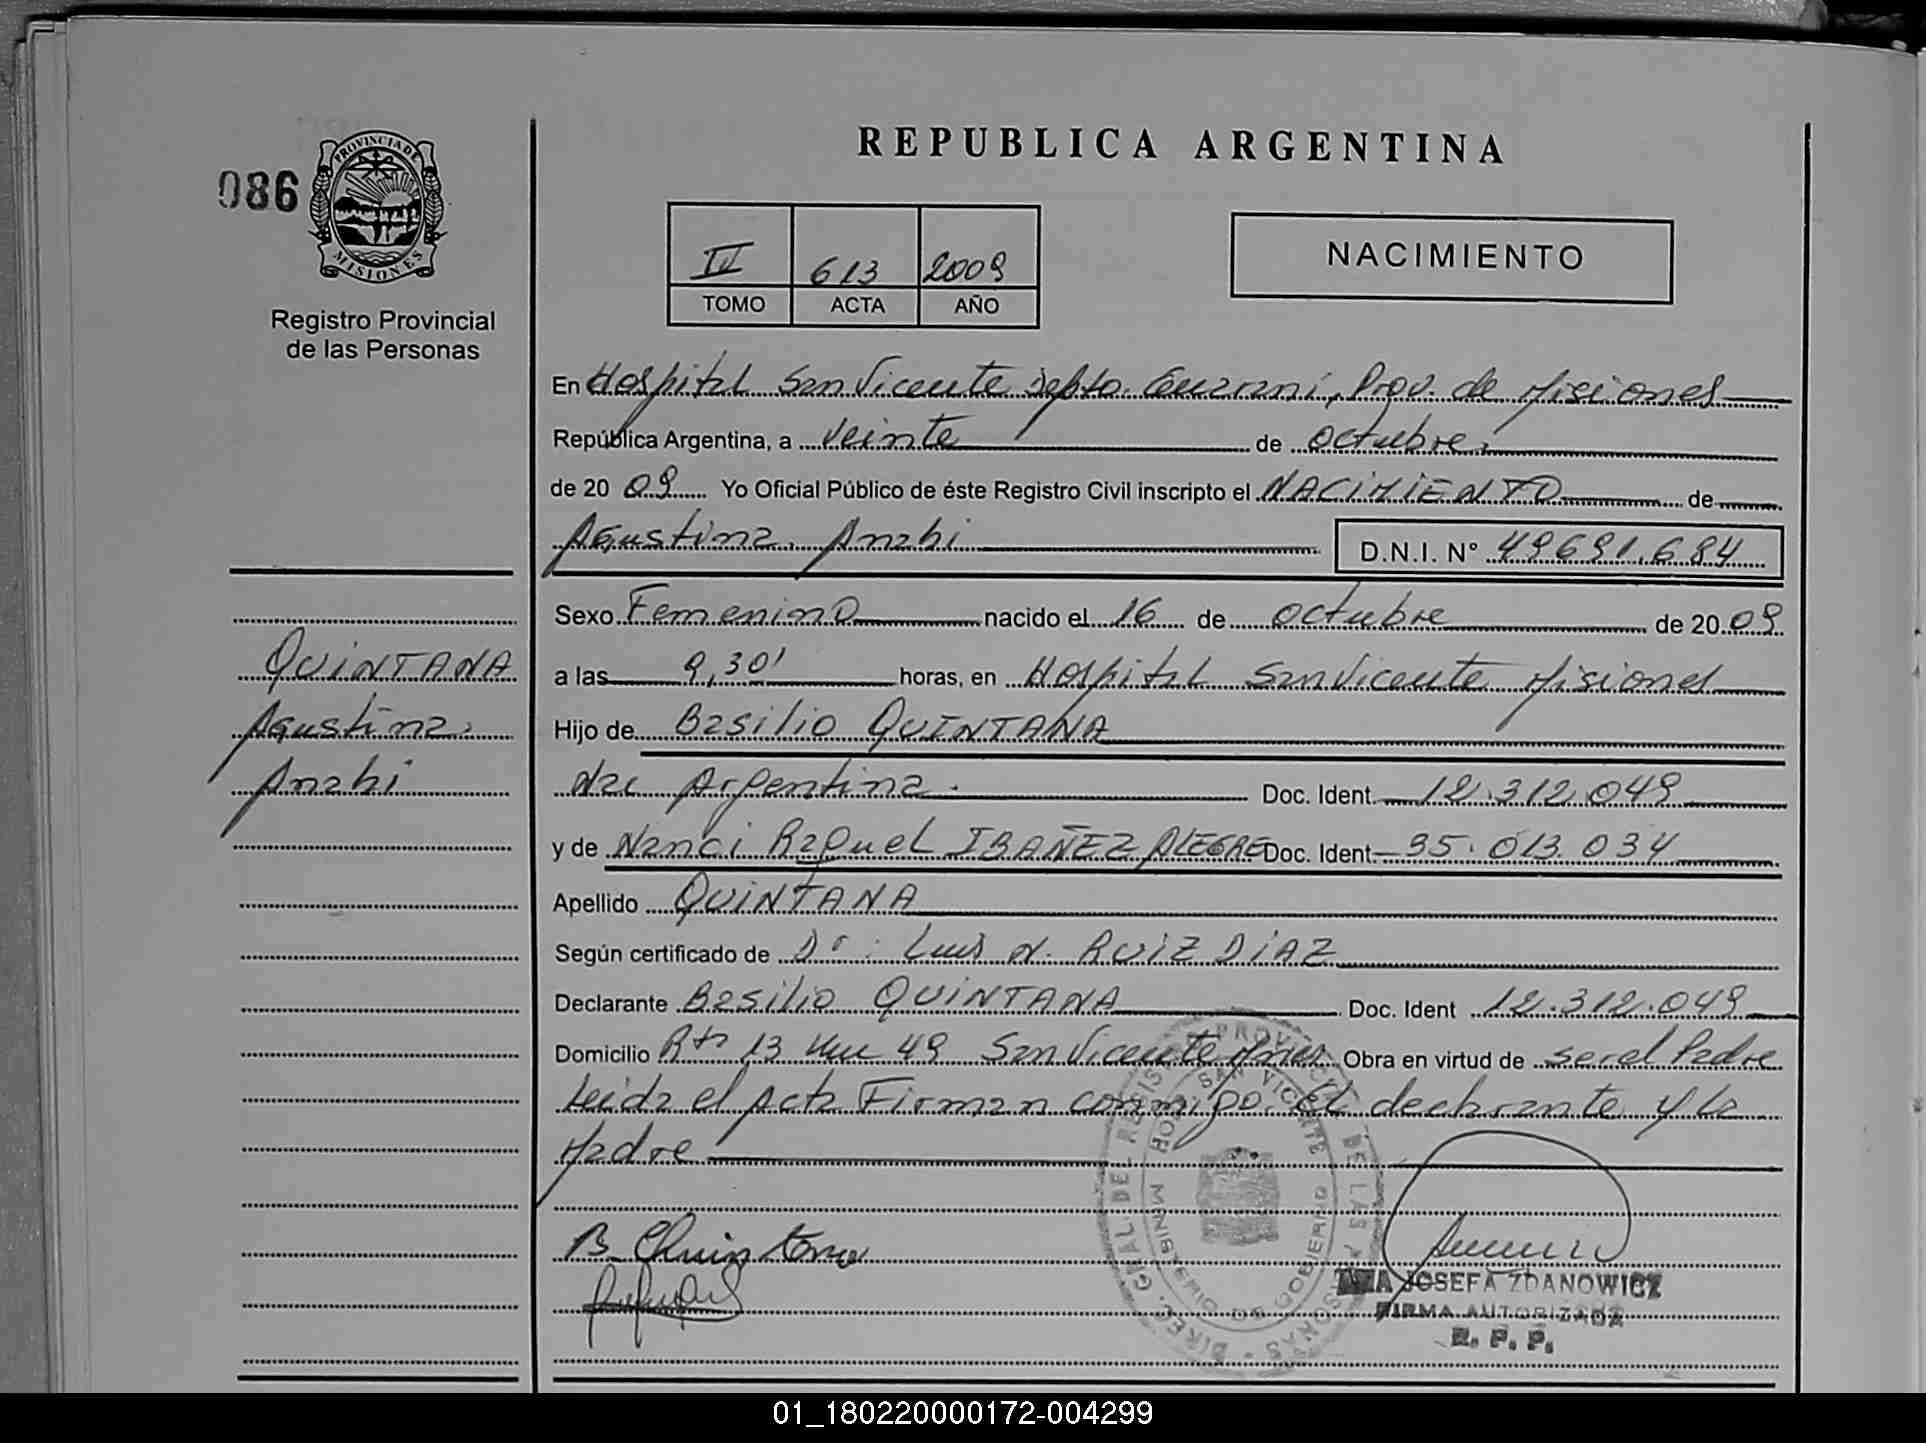 REPUBLICA ARGENTINA
086
PROVINCIA DE
MISIONES
Registro Provincial
de las Personas
II 613 2009
TOMO ACTA AÑO
NACIMIENTO
En Hospital San Vicente Depto. Guarani, Prov. de Misiones
República Argentina, a veinte de octubre.
de 20 09 Yo Oficial Público de éste Registro Civil inscripto el NACIMIENTO de
Agustina Anahi D.N.I. N° 49691.684
Sexo Femenino nacido el 16 de octubre de 20 09
QUINTANA
Agustina
Anahi
a las 9,30' horas, en Hospital San Vicente Misiones
Hijo de Basilio QUINTANA
Nac Argentina. Doc. Ident. 12.312.049
y de Nanci Raquel IBAÑEZ ALEGRE Doc. Ident. 95.013.034
Apellido QUINTANA
Según certificado de Dr: Luis N. RUIZ DIAZ
Declarante Basilio QUINTANA Doc. Ident 12.312.049
Domicilio Rta 13 km 49 San Vicente Mnes Obra en virtud de ser el Padre
Leida el acta Firman conmigo el declarante y la
Madre
B Quintana
DIREC. GRAL. DEL REGIST PROVINCIAL DE LAS PERSONAS
SAN VICENTE
MINISTERIO DE GOBIERNO
JOSEFA ZDANOWICZ
FIRMA AUTORIZADA
R. P. P.
01_180220000172-004299